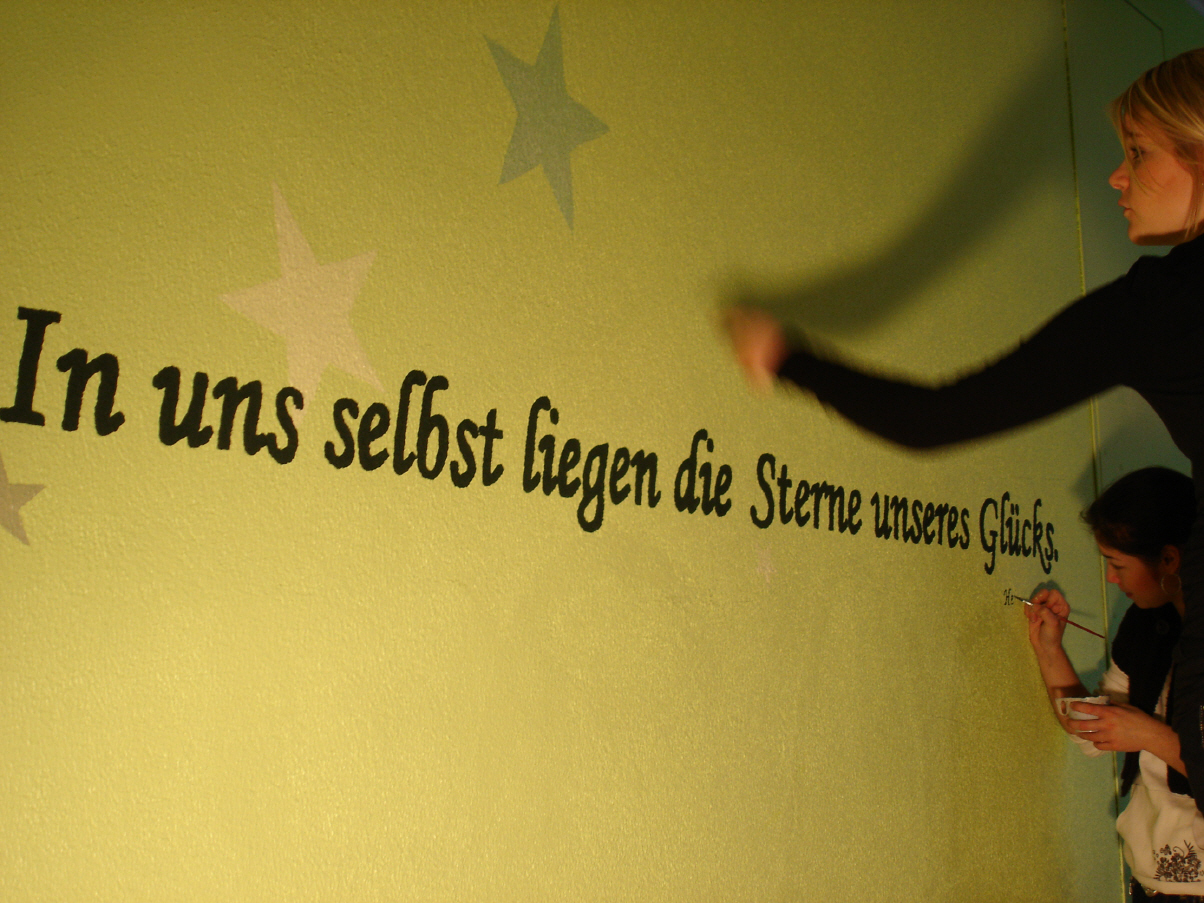 In uns selbst liegen die Sterne unseres Glücks.
He